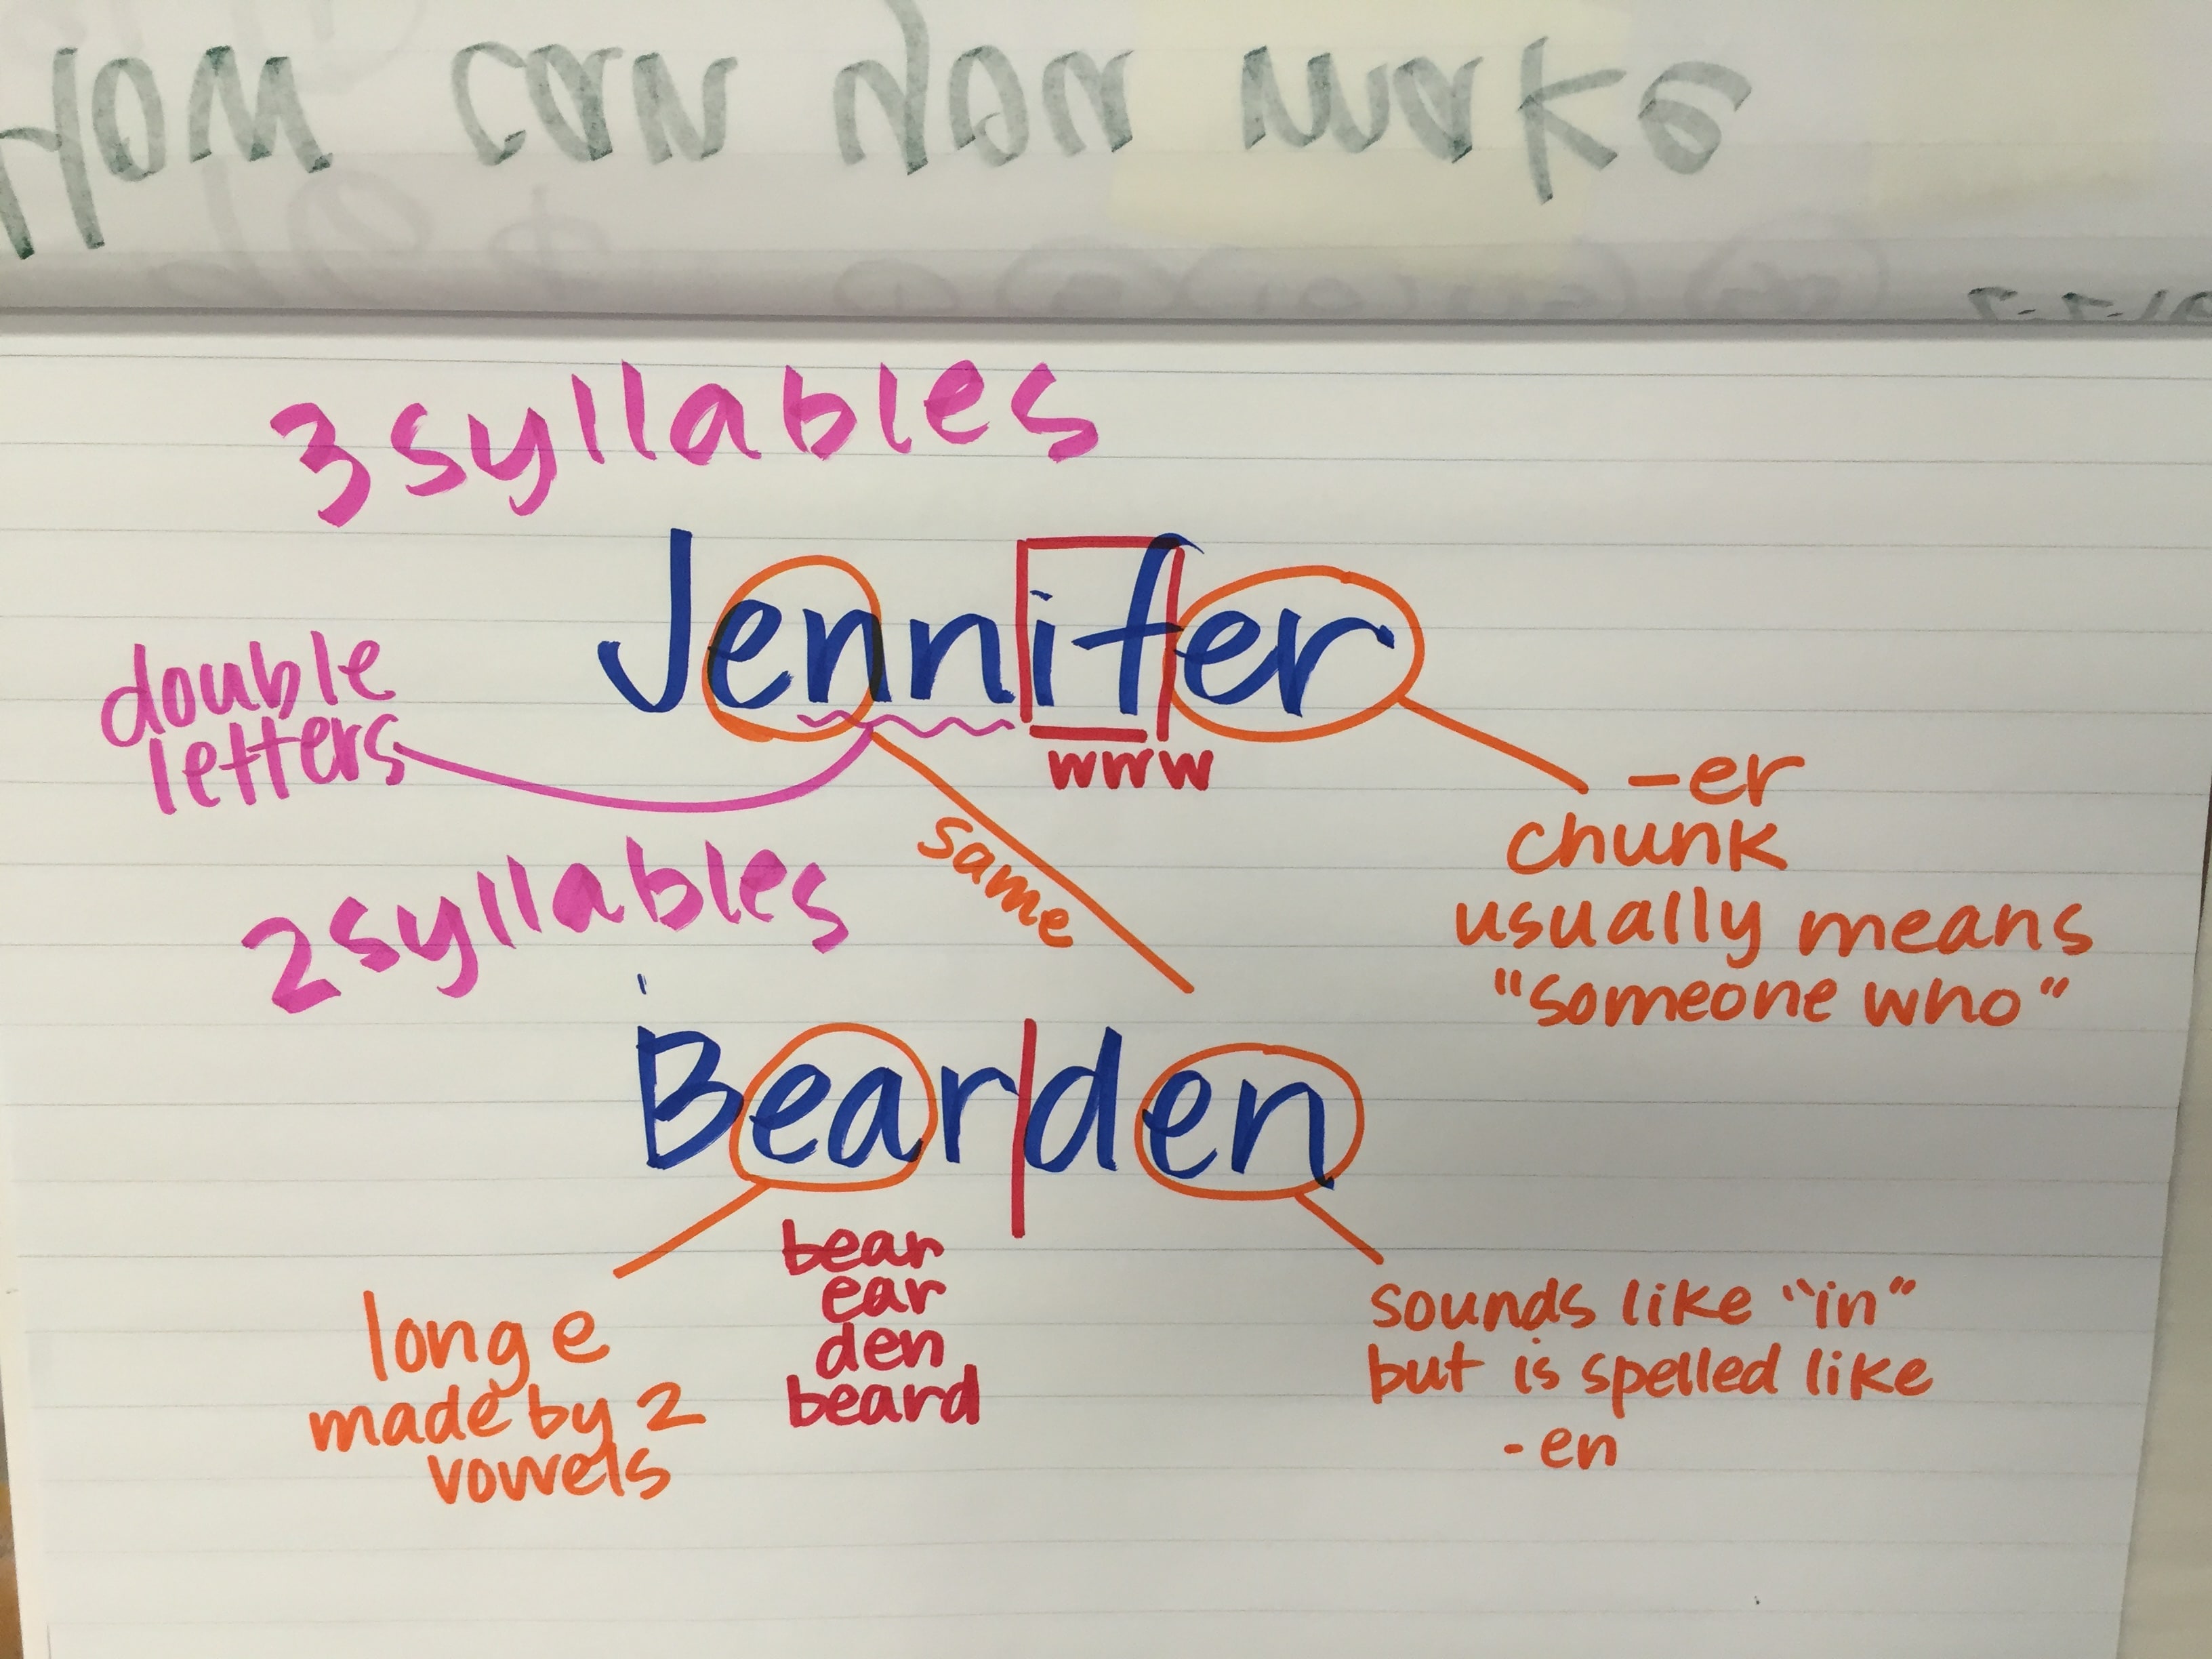 How can you make
3 syllables
Jennifer
double
letters
wrw
same
-er
chunk
usually means
"someone who"
2 syllables
Bearden
long e
made by 2
vowels
bear
ear
den
beard
sounds like "in"
but is spelled like
-en